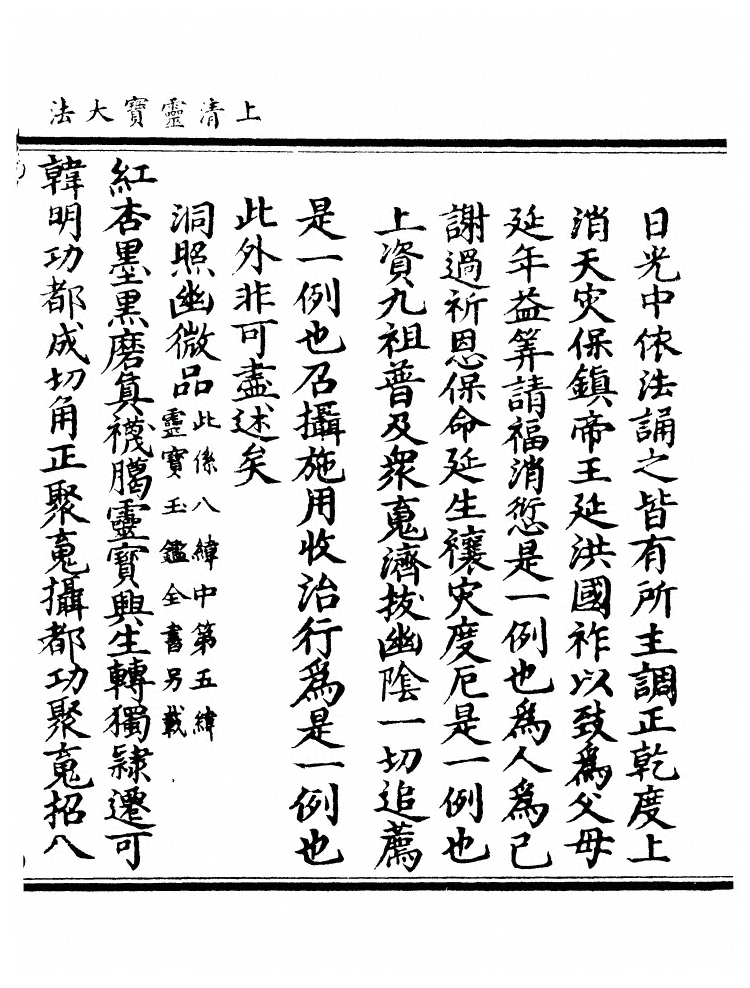 上清靈寶大法
日光中依法誦之皆有所主調正乾度上
消天灾保鎮帝王延洪國祚以致爲父母
延年益筭請福消愆是一例也爲人爲已
謝過祈恩保命延生禳灾度厄是一例也
上資九祖普及衆䰟濟拔幽陰一切追薦
是一例也召攝施用收治行爲是一例也
此外非可盡述矣
洞照幽微品此係八緯中第五緯
靈寶玉鑑全書另載
紅杏墨黑磨真襪臈靈寶興生轉獨隷遷可
韓明功都成切角正聚䰟攝都功聚䰟招八